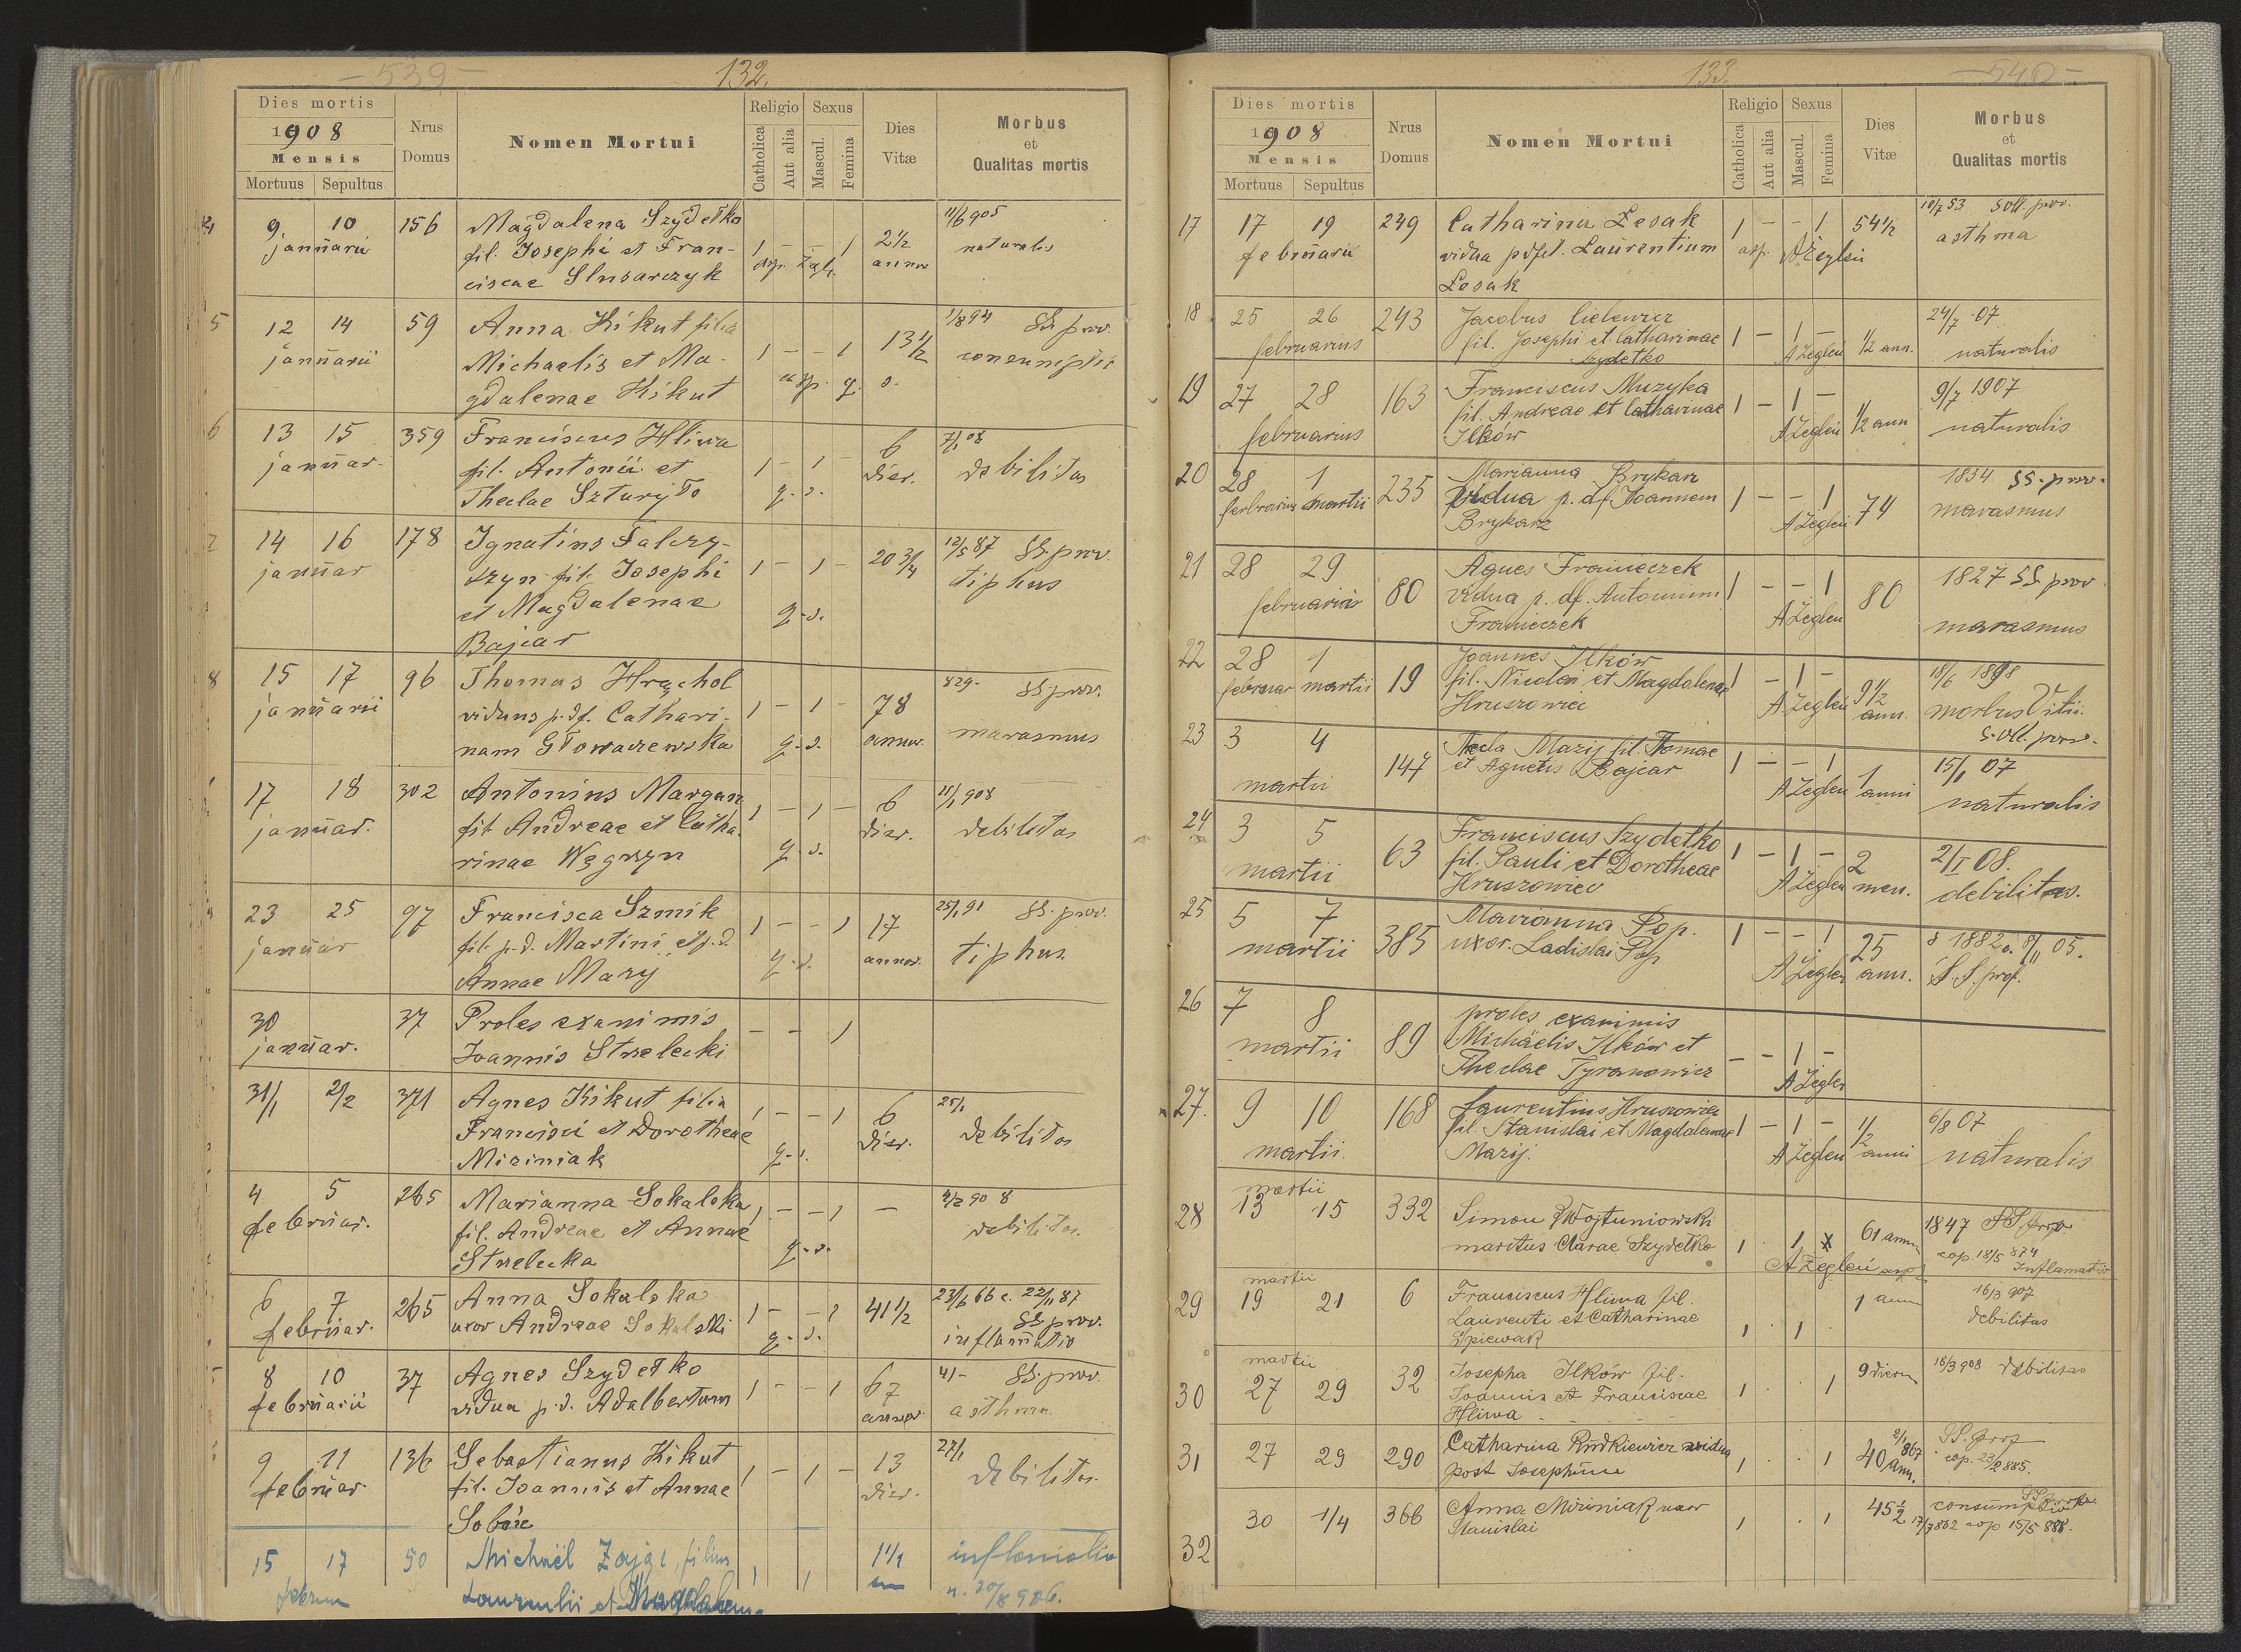 - 539 -
132.
Dies mortis
1908
Mensis
Mortuus
Sepultus
Nrus
Domus
Nomen Mortui
Religio
Catholica
Aut alia
Sexus
Mascul.
Femina
Dies
Vitæ
Morbus
et
Qualitas mortis
4 9. 10 156 Magdalena Szydełko 11/6 905
januarii fil. Josephi et Fran- 1 - - 1 2 1/2 naturalis
ciscae Slusarczyk
5 12 14 59 Anna Kikut filia 1/8 94 SS. prov.
januarii Michaelis et Ma- 1 - - 1 13 1/2
gdalenae Kikut
6 13 15 359 Franciscus Hliwa 6 7/1 08
januar. fil. Antonii et 1 - 1 - dier. debilitas
Theclae q. s.
7 14 16 178 Ignatius Falczy- 12/5 87 SS. prov.
januar szyn fil. Josephi 1 - 1 - 20 3/4 tiphus
et Magdalenae q. s.
Bajcar
8 15 17 96 Thomas 829 - SS. prov.
januarii viduus p. df. Cathari- 1 - 1 - 78
nam Głowaczewska q. s. annor. marasmus
17 18 302 Antonius Margan 1 - 1 - 6 11/1 908
januar. fil Andreae et Catha- dier. debilitas
rinae Węgrzyn q. s.
23 25 97 Francisca Szmik 1 - - 1 17 25/1 91 SS. prov.
januar fil. p. d. Martini et p. d. annor. tiphus
Annae Mazij q. s.
30 37 Proles exanimis - - 1
januar. Joannis Strzelecki
31/1 2/2 371 Agnes Kikut filia 1 - - 1 6 25/1
Francisci et Dorotheae dier. debilitas
Miziniak q. s.
4 5 265 Marianna Sokalska 1 - - 1 - 4/2 90 8
februar. fil. Andreae et Annae debilitas.
Strzelecka q. s.
6 7 265 Anna Sokalska 1 - - 1 41 1/2 23/6 66 c. 22/11 87
februar. uxor Andreae Sokalski q. s. SS. prov.
inflamatio
8 10 37 Agnes Szydełko 1 - - 1 67 41 - SS. prov.
februarii vidua p. d. Adalbertum annor. asthma
9 11 136 Sebastianus Kikut 1 - 1 - 13 27/1
februar. fil. Joannis et Annae dier. debilitas
15 17 50 Michaël Zając, filius 1 1 1 1/2 inflamatio
Laurentii et Magdalenae n. 20/8 906.
133.
- 540 -
Dies mortis
1908
Mensis
Mortuus
Sepultus
Nrus
Domus
Nomen Mortui
Religio
Catholica
Aut alia
Sexus
Mascul.
Femina
Dies
Vitæ
Morbus
et
Qualitas mortis
17 17 19 249 Catharina Lesak 1 - - 1 54 1/2 10/7 53
februarii vidua Laurentium asthma
Lesak
18 25 26 243 Jacobus 24/7 07
februarius fil. Josephi et Catharinae 1 - 1 - 1/2 ann. naturalis
Szydełko A Żegleń
19 27 28 163 Franciscus Muzyka 9/7 1907
fil. Andreae et Catharinae 1 - 1 - 1/2 ann naturalis
februarius Ilków A Żegleń
20 28 1 235 Marianna Brykarz 1834 SS. prov.
martii vidua p. df. Joannem 1 - - 1 74 marasmus
Brykarz A Żegleń
21 28 29 80 Agnes Franieczek 1827 SS prov
februarius vidua p. df. Antonium 1 - - 1 80
Franieczek A Żegleń marasmus
22 28 1 19 Joannes Ilków 18/6 1898
februar martii fil. Nicolai et Magdalenae 1 - 1 - 9 1/2 morbus
Hruszowiec A Żegleń ann.
23 3 4 147 Thecla Mazij fil. Thomae 15/1 07
martii et Agnetis Bajcar 1 - - 1 1 anni naturalis
A Żegleń
24 3 5 63 Franciscus Szydełko 2/I 08.
martii fil. Pauli et Dorotheae 1 - 1 - 2 men. debilitas.
Hruszowiec A Żegleń
25 5 7 385 Marianna Pop. 1 - - 1 25 1882 c. 8/11 05.
martii uxor. Ladislai Pop A Żegleń ann.
26 7 8 89 proles exanimis
martii Michaëlis Ilków et - - 1 -
Theclae Tyranowicz
27. 9 10 168 Laurentius Hruszowiec 6/8 07
martii fil. Stanislai et Magdalenae 1 - 1 - 1/2 anni naturalis
Mazij. A Żegleń
28 martii 13 15 332 Simon Wojtuniowski 1847
maritus Clarae Szydełko 1 . 1 x 61 annor cop. 18/5 874
A Żegleń Inflamatio
29 martii 19 21 6 Franciscus Hliwa fil. 1 ann 16/3 907
Laurenti et Catharinae 1 1 debilitas
Spiewak
30 martii 27 29 32 Josepha Ilków fil. 9 dierum 18/3 908 debilitas
Joannis et Franciscae 1 . . 1
Hliwa
31 27 29 290 Catharina Rudkiewicz vidua 1 . . 1 40 ann. 2/1 867
post Josephum cop. 23/2 885.
32 30 1/4 366 Anna Miziniak uxor 1 . 1 45 1/2 consumptio
Stanislai 17/7 862 cop 15/5 888.